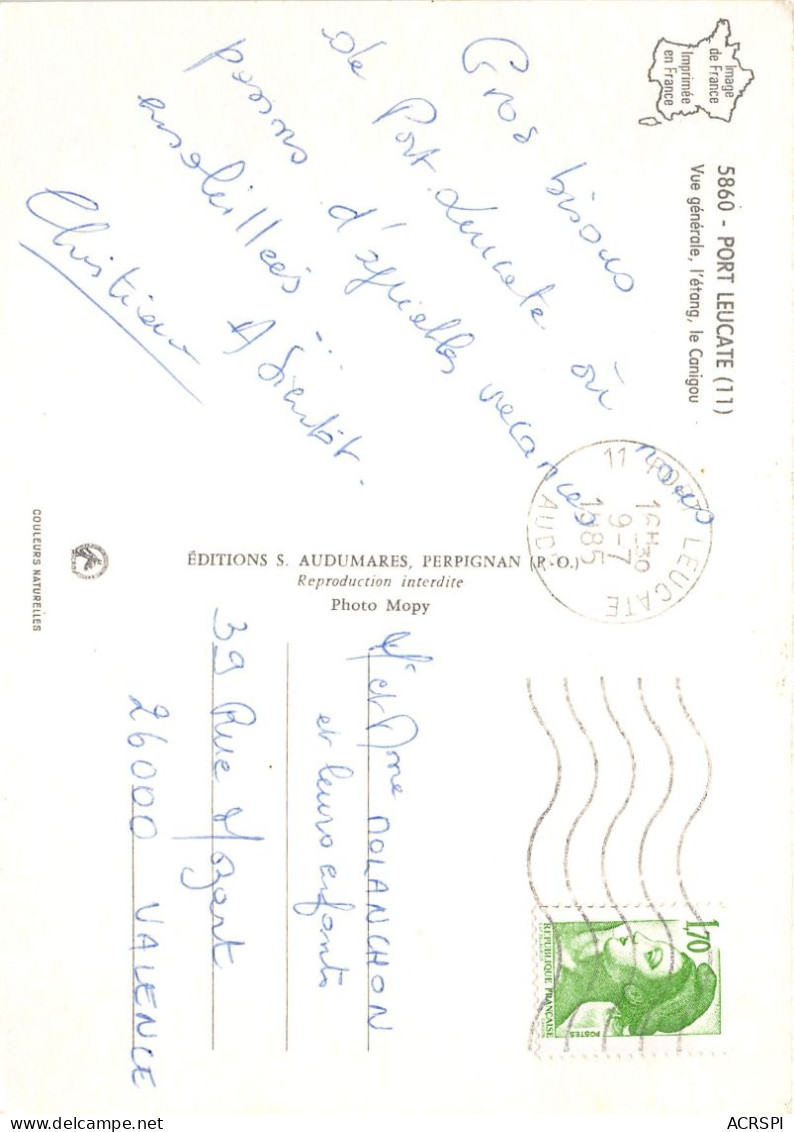 Image
de France
Imprimée
en France
5860 - PORT LEUCATE (11)
Vue générale, l'étang, le Canigou
Gros bisous
de Port-Leucate où nous
passons d'agréables vacances
ensoleillées...
A bientôt.
Christian
11 PORT LEUCATE
16H30
9-7
1985
AUDE
ÉDITIONS S. AUDUMARES, PERPIGNAN (P.-O.)
Reproduction interdite
Photo Mopy
COULEURS NATURELLES
Mr et Mme MOLANCHON
et leurs enfants
39 Rue Mozart
26000 VALENCE
1,70
REPUBLIQUE FRANÇAISE
POSTES
ACRSPI